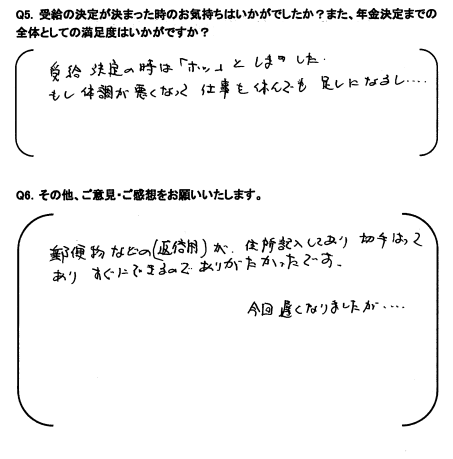 Q5. 受給の決定が決まった時のお気持ちはいかがでしたか？また、年金決定までの
全体としての満足度はいかがですか？
受給決定の時は「ホッ」としました.
もし体調が悪くなって仕事を休んでも足しになるし‥‥
Q6. その他、ご意見・ご感想をお願いいたします。
郵便物などの(返信用)が、住所記入してあり切手はって
ありすぐにできるのでありがたかったです。
今回遅くなりましたが‥‥